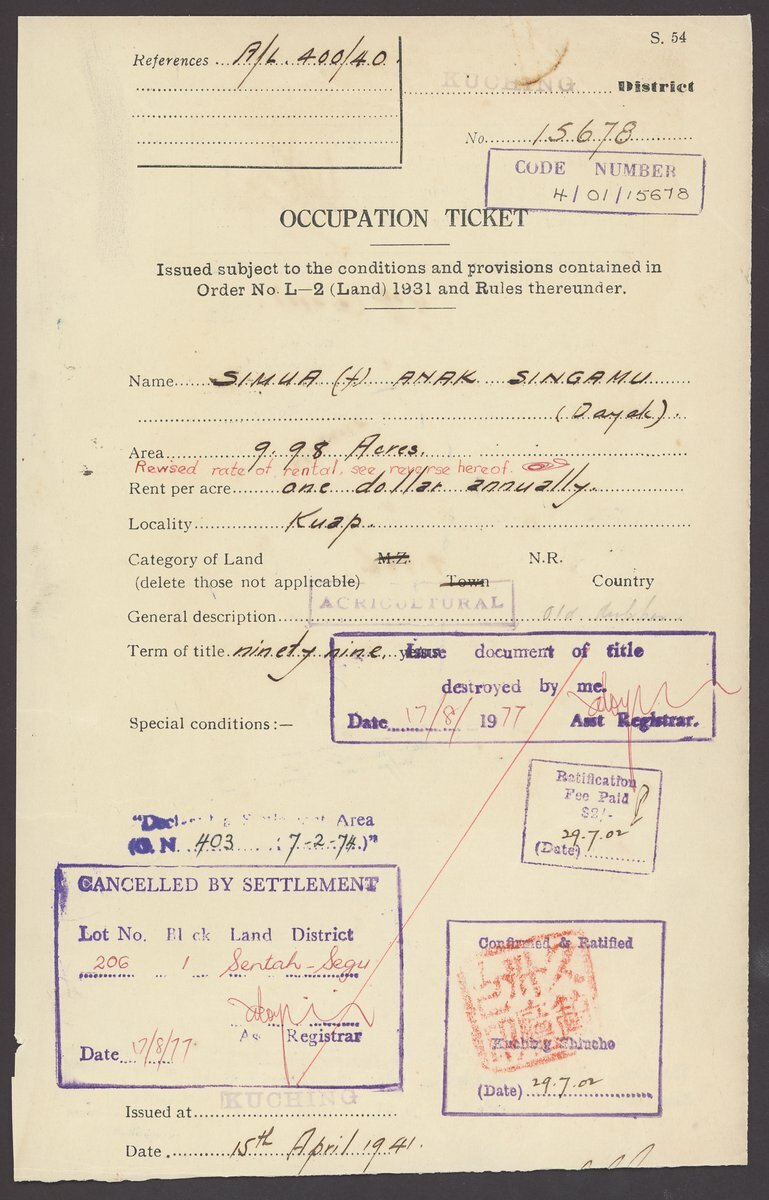 S. 54
References A/L. 400/40.
KUCHING District
No. 15678
CODE NUMBER
4/01/15678
OCCUPATION TICKET
Issued subject to the conditions and provisions contained in
Order No. L—2 (Land) 1931 and Rules thereunder.
Name SIMUA (f) ANAK SINGAMU
(Dayak).
Area 9.98 Acres.
Revised rate of rental, see reverse hereof.
Rent per acre one dollar annually.
Locality Kuap.
Category of Land M.Z. N.R.
(delete those not applicable) Town Country
AGRICULTURAL
General description Old
Term of title ninety nine, years
Issue document of title
destroyed by me.
Date 17/8/1977 Asst Registrar.
Special conditions :—
Ratification
Fee Paid
$2/-
29.7.02
(Date)
"Declared a Settlement Area
(G. N. 403 : 7-2-74.)"
CANCELLED BY SETTLEMENT
Lot No. Block Land District
206 1 Sentah-Segu
Asst Registrar
Date 17/8/77
Confirmed & Ratified
Kuching Shucho
(Date) 29.7.02
Issued at KUCHING
Date 15th April 1941.